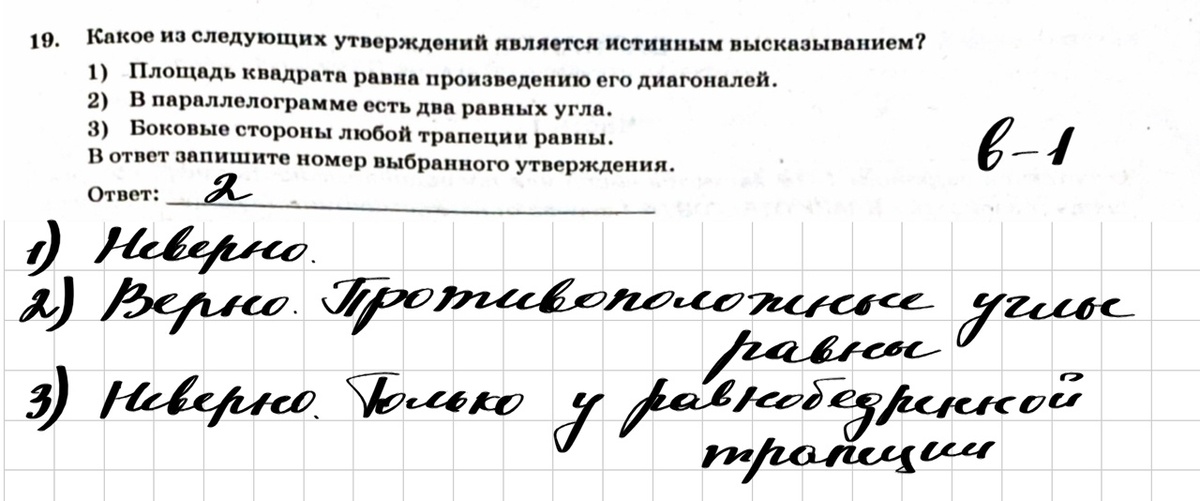 19. Какое из следующих утверждений является истинным высказыванием?
1) Площадь квадрата равна произведению его диагоналей.
2) В параллелограмме есть два равных угла.
3) Боковые стороны любой трапеции равны.
В ответ запишите номер выбранного утверждения.
в-1
Ответ: 2
1) Неверно.
2) Верно. Противоположные углы
равны
3) Неверно. Только у равнобедренной
трапеции